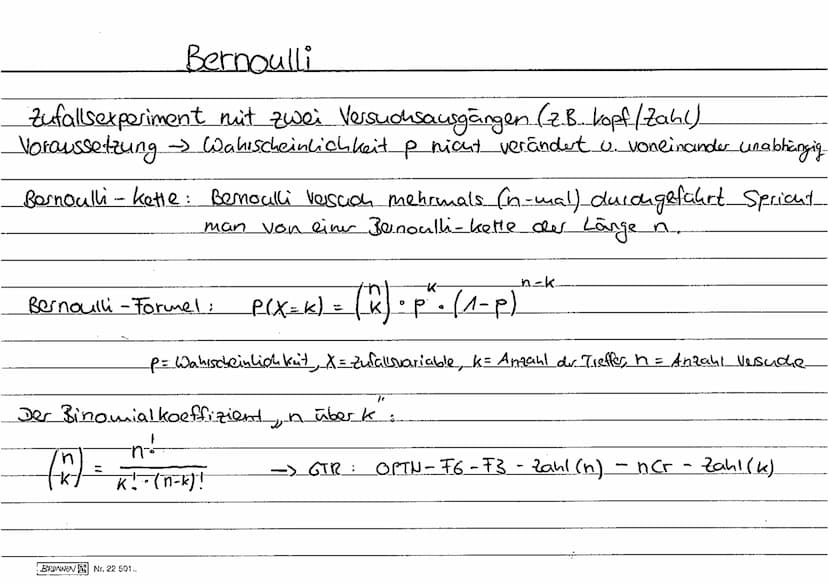 Bernoulli
Zufallsexperiment mit zwei Versuchsausgängen (z.B. Kopf/Zahl)
Voraussetzung → Wahrscheinlichkeit p nicht verändert u. voneinander unabhängig
Bernoulli-Kette: Bernoulli Versuch mehrmals (n-mal) durchgeführt Spricht
man von einer Bernoulli-Kette der Länge n.
Bernoulli-Formel: P(X=k) = (n über k) · p^k · (1-p)^(n-k)
p = Wahrscheinlichkeit, X = Zufallsvariable, k = Anzahl der Treffer, n = Anzahl Versuche
Der Binomialkoeffizient „n über k":
(n über k) = n! / (k! · (n-k)!) → GTR: OPTN-F6-F3-Zahl(n)-nCr-Zahl(k)
BRUNNEN Nr. 22 501..